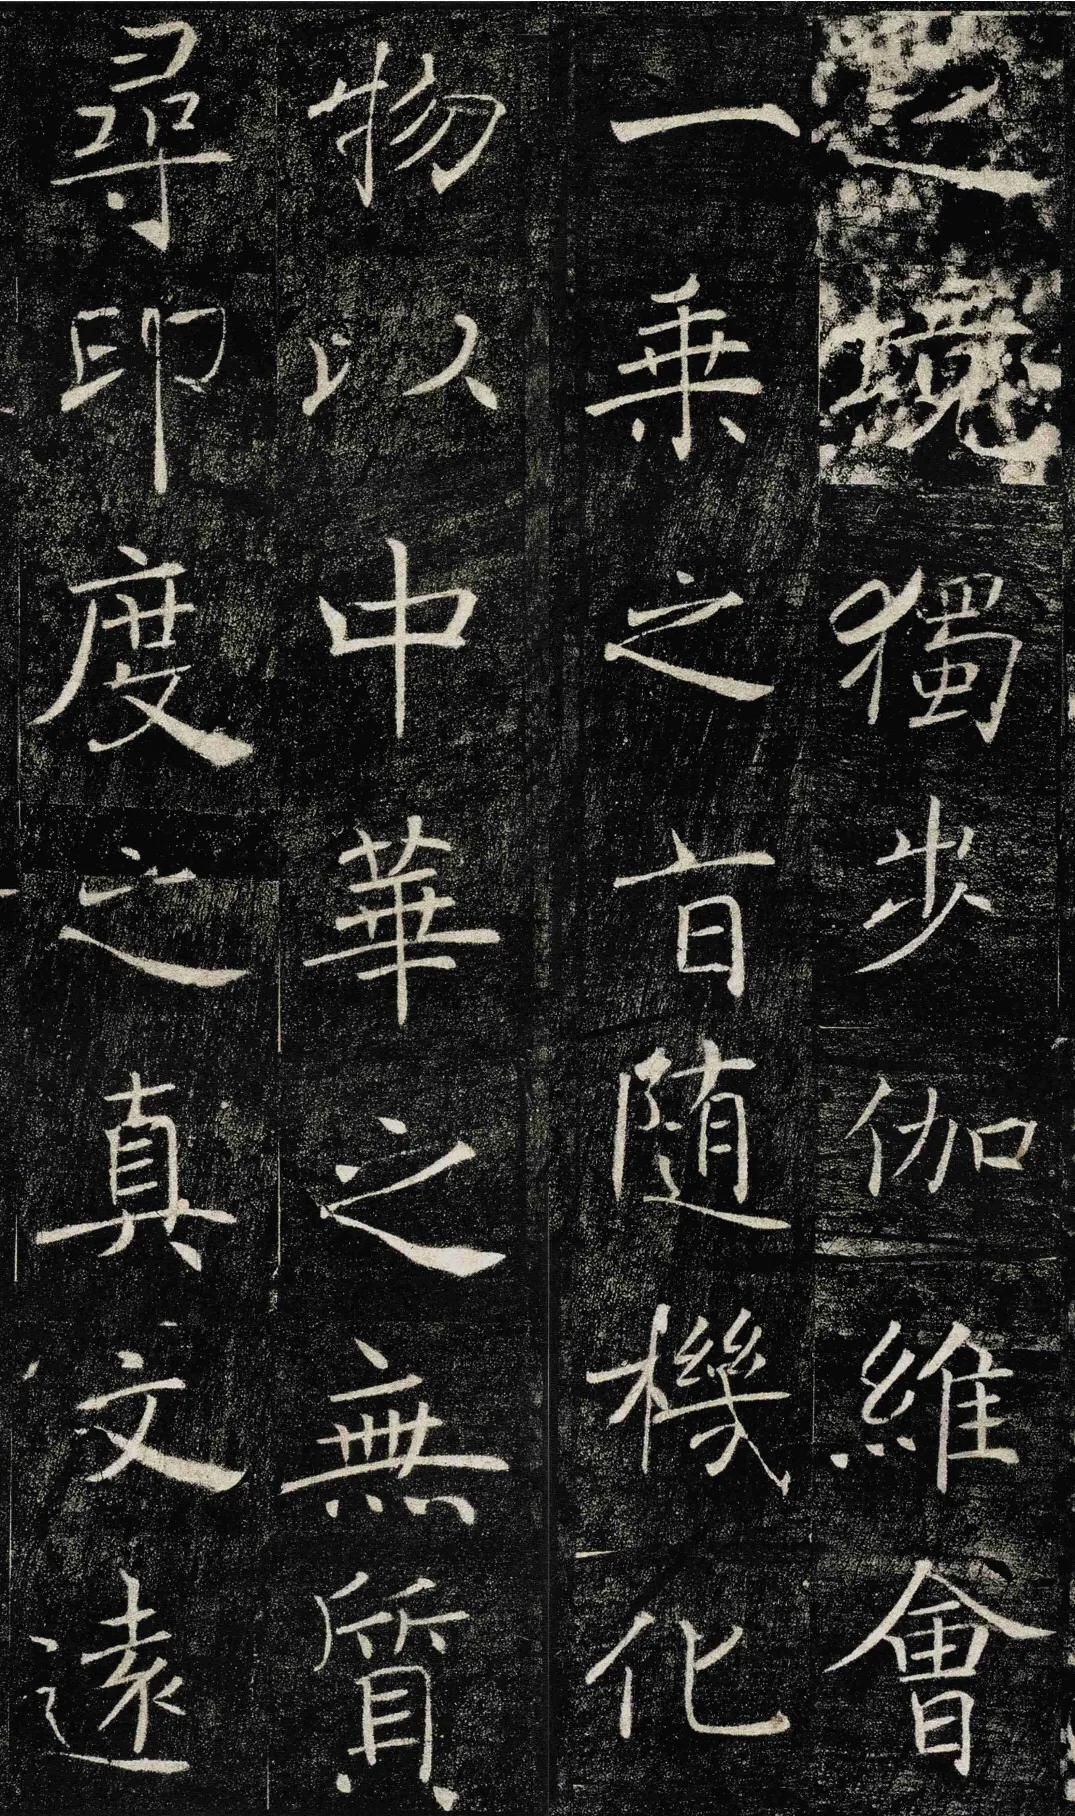 之境獨步伽維會
一乘之旨随機化
物以中華之無質
尋印度之真文遠